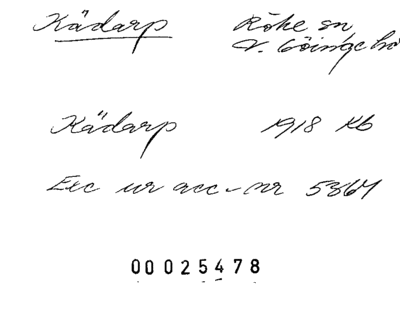 Kädarp Röke sn,
V. Göinge hd
Kädarp 1918 Kb
Exc ur acc-nr 5367
00025478